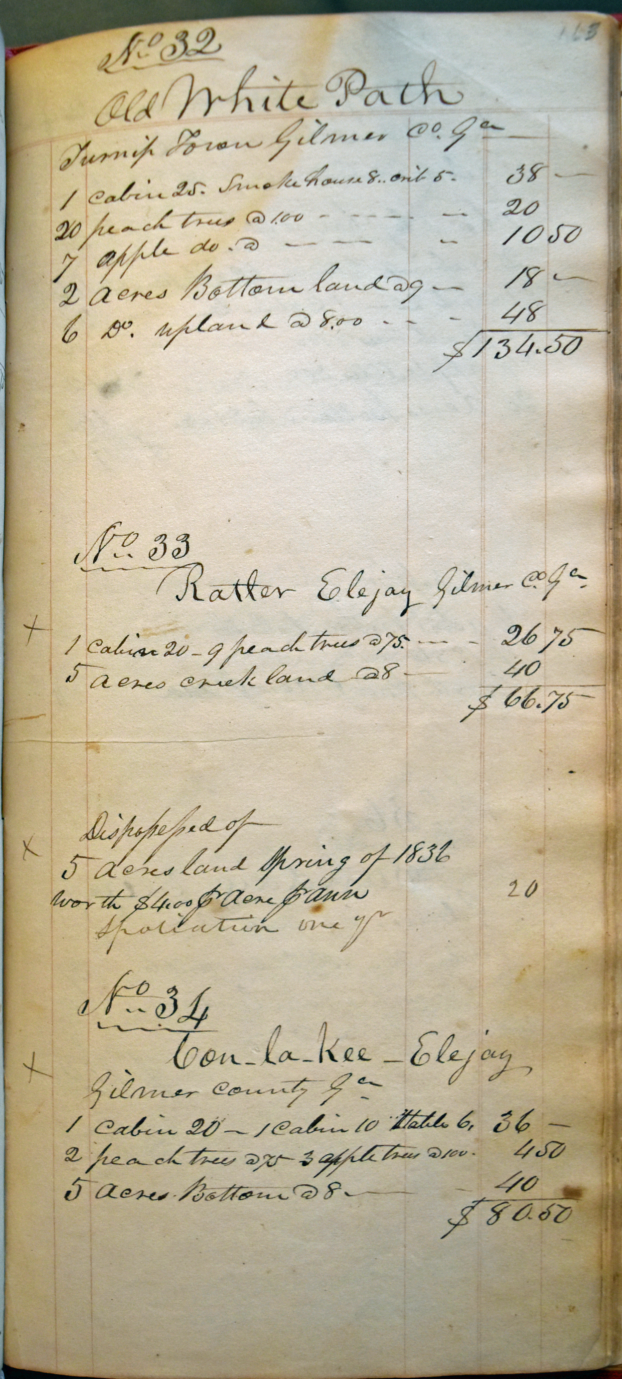 163
No 32
Old White Path
Turnip Town Gilmer Co. Ga
1 cabin 25. Smoke house 8.. crib 5. 38 —
20 peach trees @ 1.00 - - - - - 20
7 apple do. @ — — — " 10 50
2 Acres Bottom land @ 9 — 18 —
6 Do. upland @ 8.00 - - - 48
$134.50
No 33
Ratler Elejay Gilmer Co. Ga
x
1 cabin 20 - 9 peach trees @ 75. — - - 26 75
5 acres creek land @ 8 — 40
$ 66.75
Dispossessed of
x
5 Acres land Spring of 1836
worth $4.00 pr Acre pr ann 20
Spoliation one yr
No 34
x
Con-la-Kee - Elejay
Gilmer County Ga
1 cabin 20 - 1 cabin 10 Stable 6. 36 —
2 peach trees @ 75 3 apple trees @ 100. 4 50
5 Acres Bottom @ 8. — - 40
$ 80.50